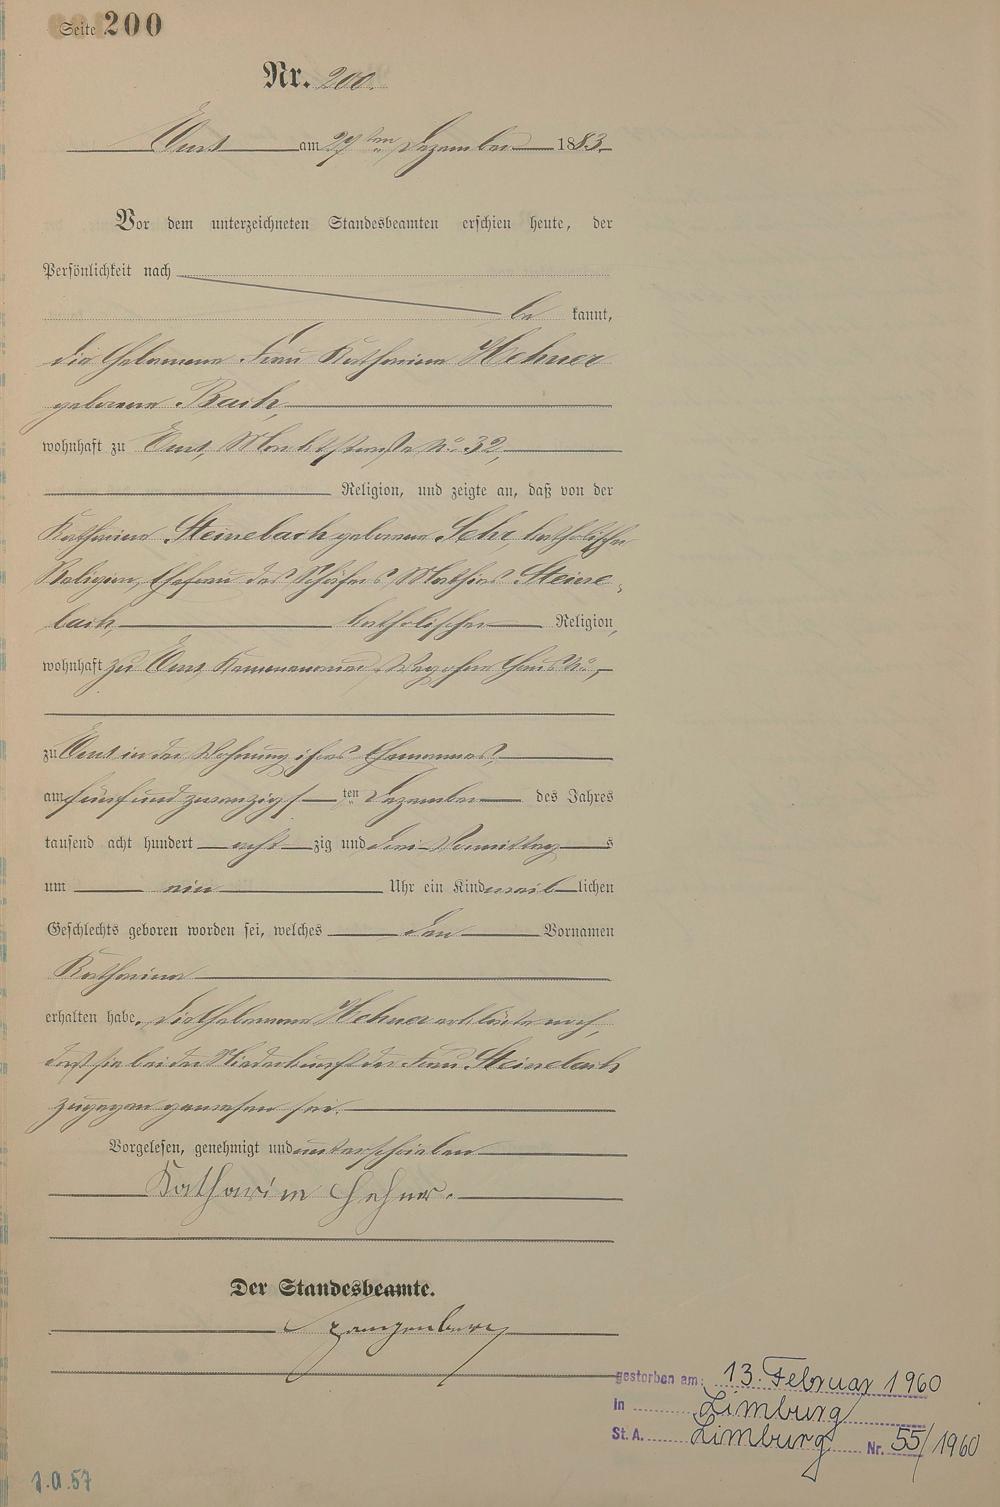 Seite 200
Nr. 200.
Ems am 27ten Dezember 1883.
Vor dem unterzeichneten Standesbeamten erschien heute, der
Persönlichkeit nach
be kannt,
die Hebamme Frau Katharina Hehner
geborene Bach,
wohnhaft zu Ems, Marktstraße No. 32,
Religion, und zeigte an, daß von der
Katharina Steinebach geborene Sehr, katholischer
Religion, Ehefrau des Schäfers Mathias Steine-
bach, katholischer Religion,
wohnhaft zu Ems, Weg ohne Haus No.,
zu Ems in der Wohnung ihres Ehemannes,
am fünf und zwanzigsten Dezember des Jahres
tausend acht hundert achtzig und drei Vormittags
um ein Uhr ein Kind weiblichen
Geschlechts geboren worden sei, welches den Vornamen
Katharina
erhalten habe. Die Hebamme Hehner erklärte noch,
daß sie bei der Niederkunft der Frau Steinebach
zugegen gewesen sei.
Vorgelesen, genehmigt und unterschrieben
Katharina Hehner.
Der Standesbeamte.
Spangenberg
gestorben am: 13. Februar 1960
in Limburg
St. A. Limburg Nr. 55/1960
1.a.57